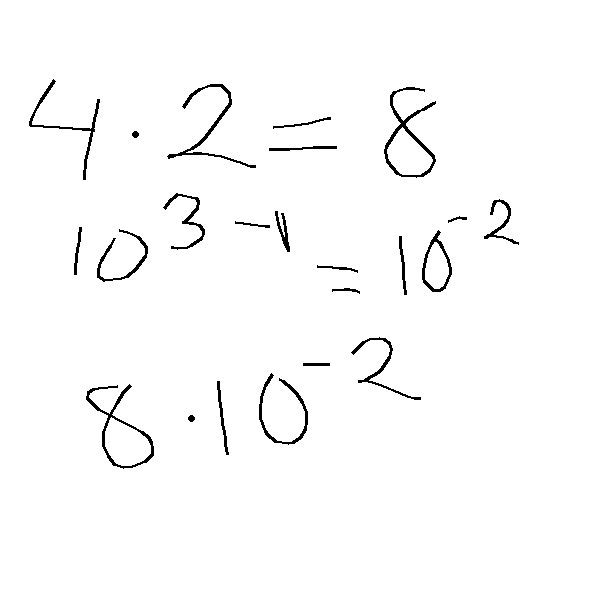 4 · 2 = 8
10³⁻ = 10⁻²
8 · 10⁻²